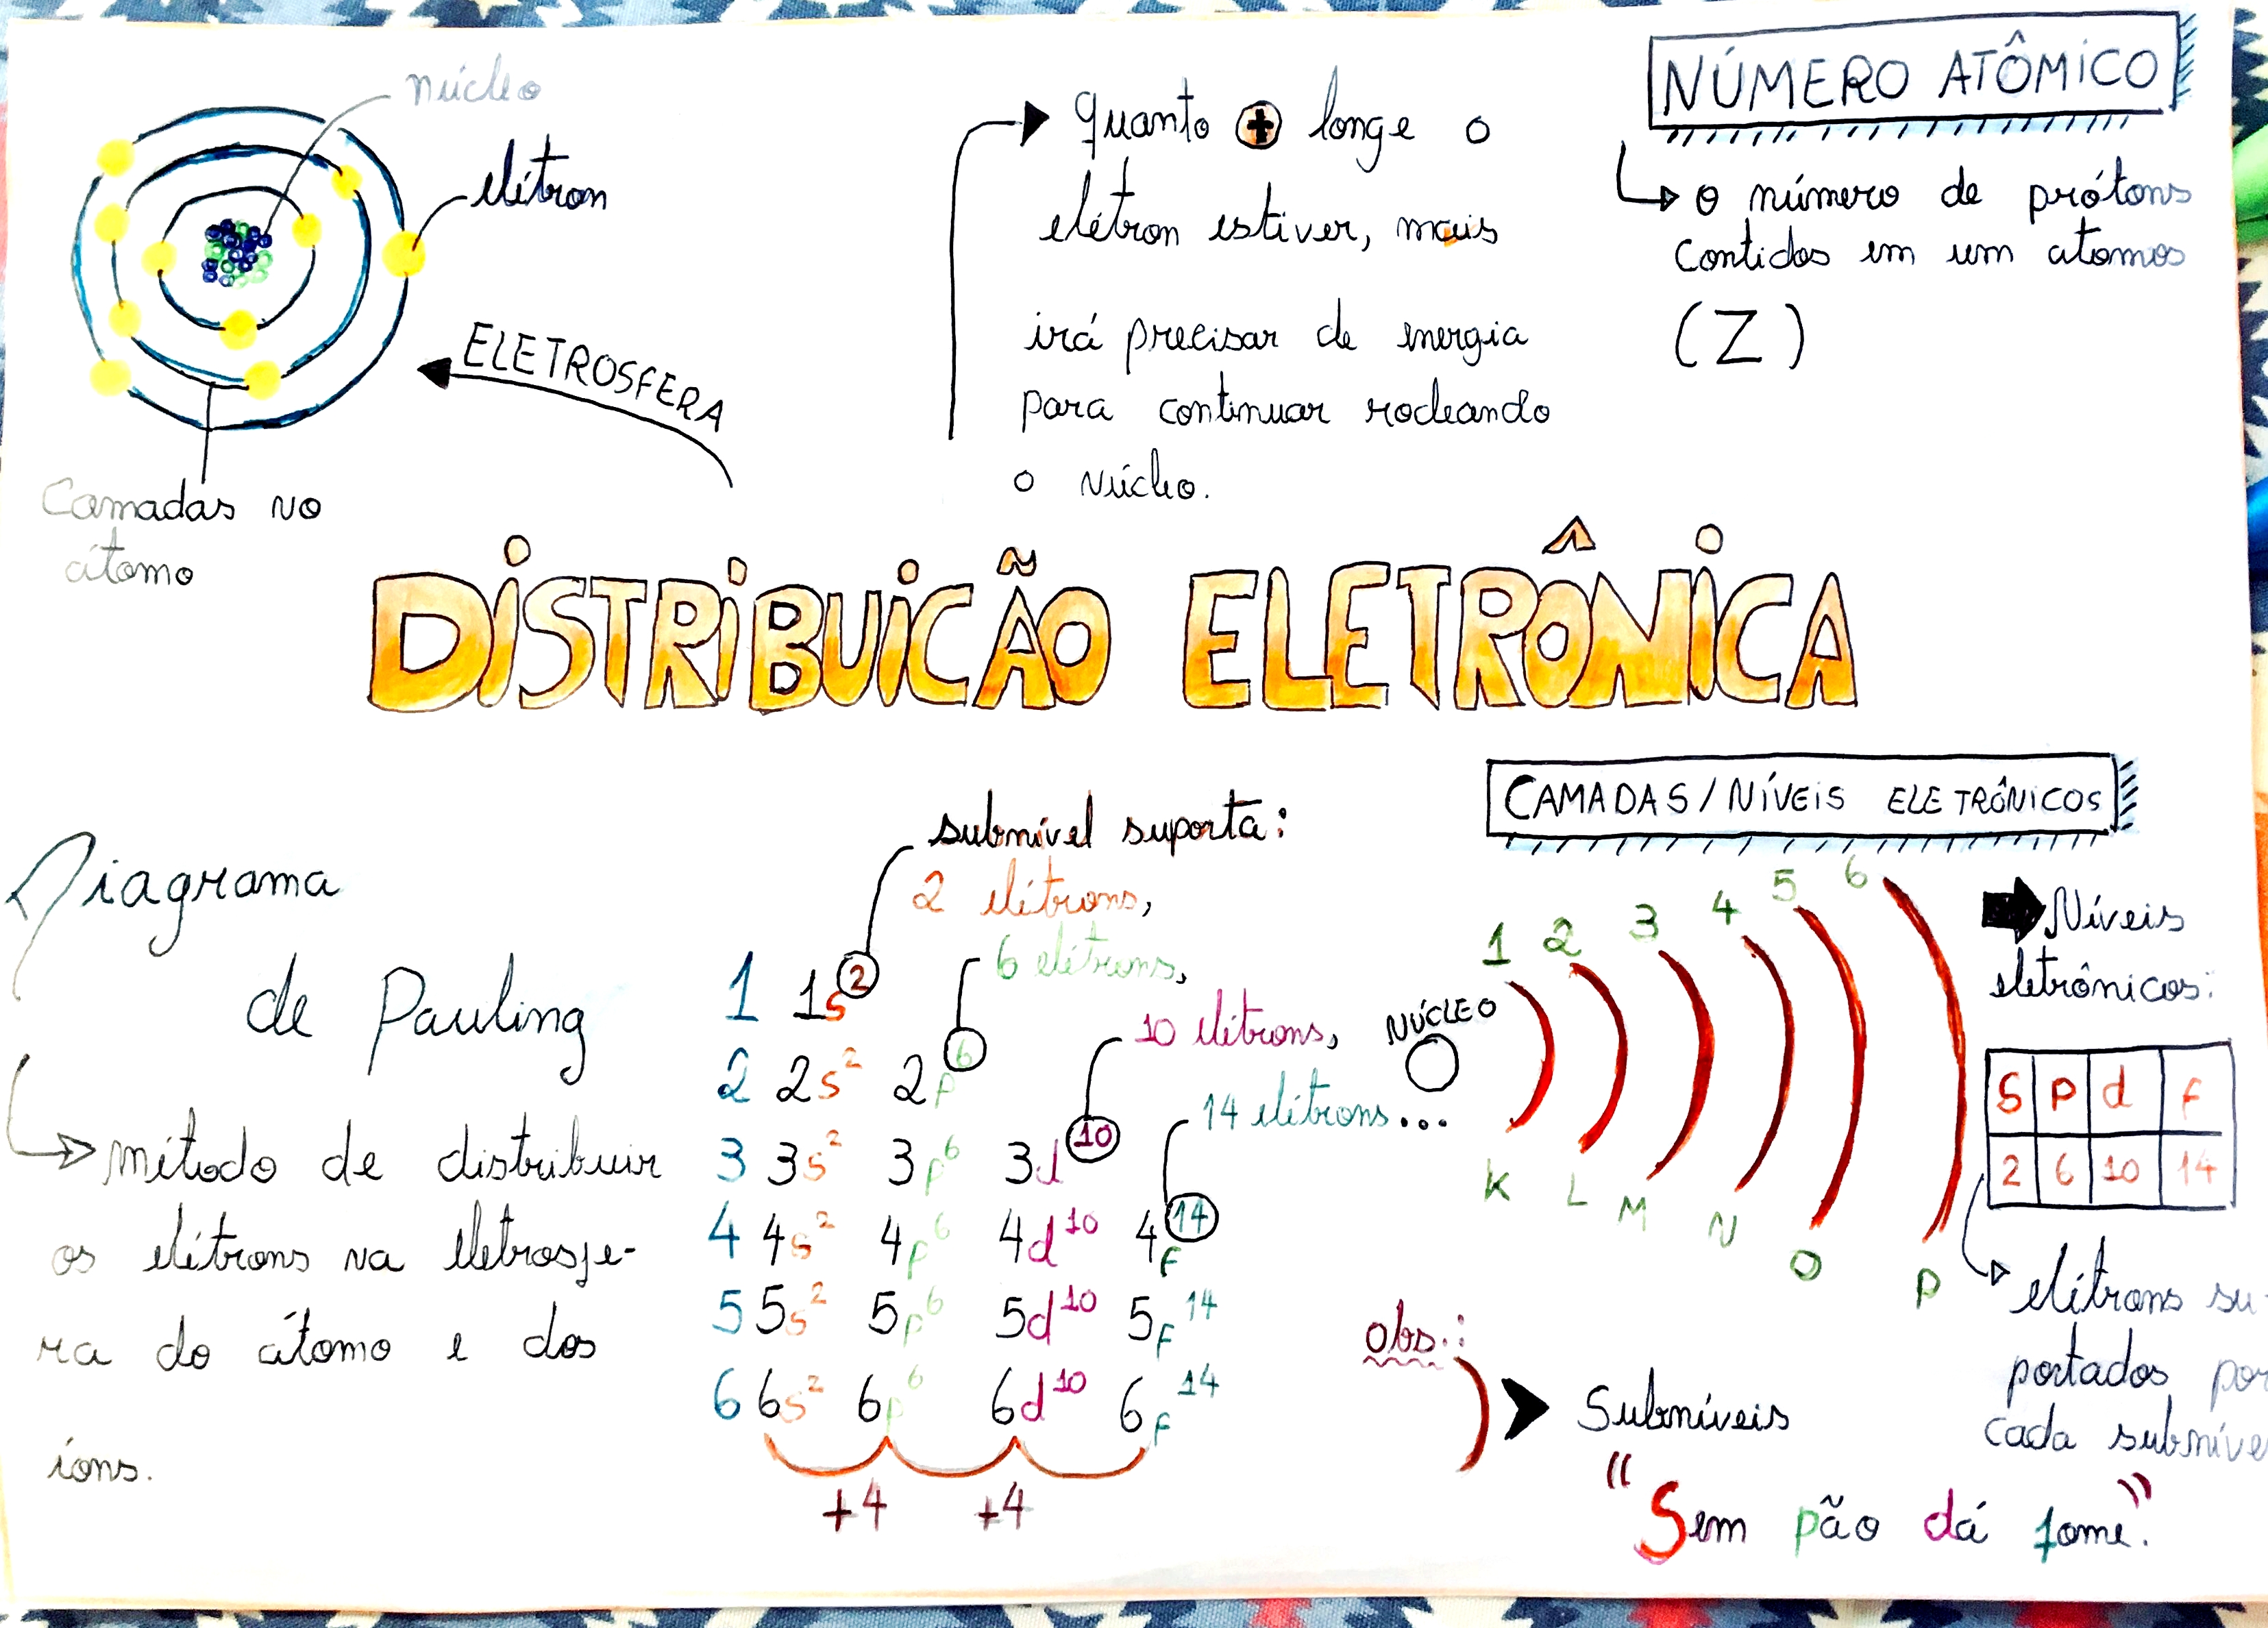 núcleo
elétron
ELETROSFERA
Camadas no
átomo
quanto + longe o
elétron estiver, mais
irá precisar de energia
para continuar rodeando
o núcleo.
NÚMERO ATÔMICO
o número de prótons
contidos em um atomos
(Z)
DISTRIBUICÃO ELETRÔNICA
Diagrama
de Pauling
método de distribuir
os elétrons na eletrosfe-
ra do átomo e dos
íons.
subnível suporta:
2 elétrons,
6 elétrons,
10 elétrons,
14 elétrons...
1 1s²
2 2s² 2p⁶
3 3s² 3p⁶ 3d¹⁰
4 4s² 4p⁶ 4d¹⁰ 4f¹⁴
5 5s² 5p⁶ 5d¹⁰ 5f¹⁴
6 6s² 6p⁶ 6d¹⁰ 6f¹⁴
+4 +4
CAMADAS/NÍVEIS ELETRÔNICOS
1 2 3 4 5 6
NÚCLEO
K L M N O P
Níveis
eletrônicos:
S P d f
2 6 10 14
elétrons su-
portados por
cada subníve
obs.:
Subníveis
"Sem pão dá fome".